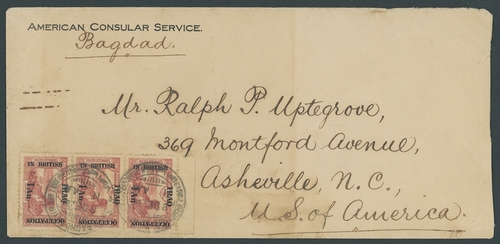 AMERICAN CONSULAR SERVICE.
Bagdad.
Mr. Ralph P. Uptegrove,
369 Montford Avenue,
Asheville, N.C.,
U.S. of America.
IRAQ
IN BRITISH
OCCUPATION
1 An.
IRAQ
IN BRITISH
OCCUPATION
1 An.
IRAQ
IN BRITISH
OCCUPATION
1 An.